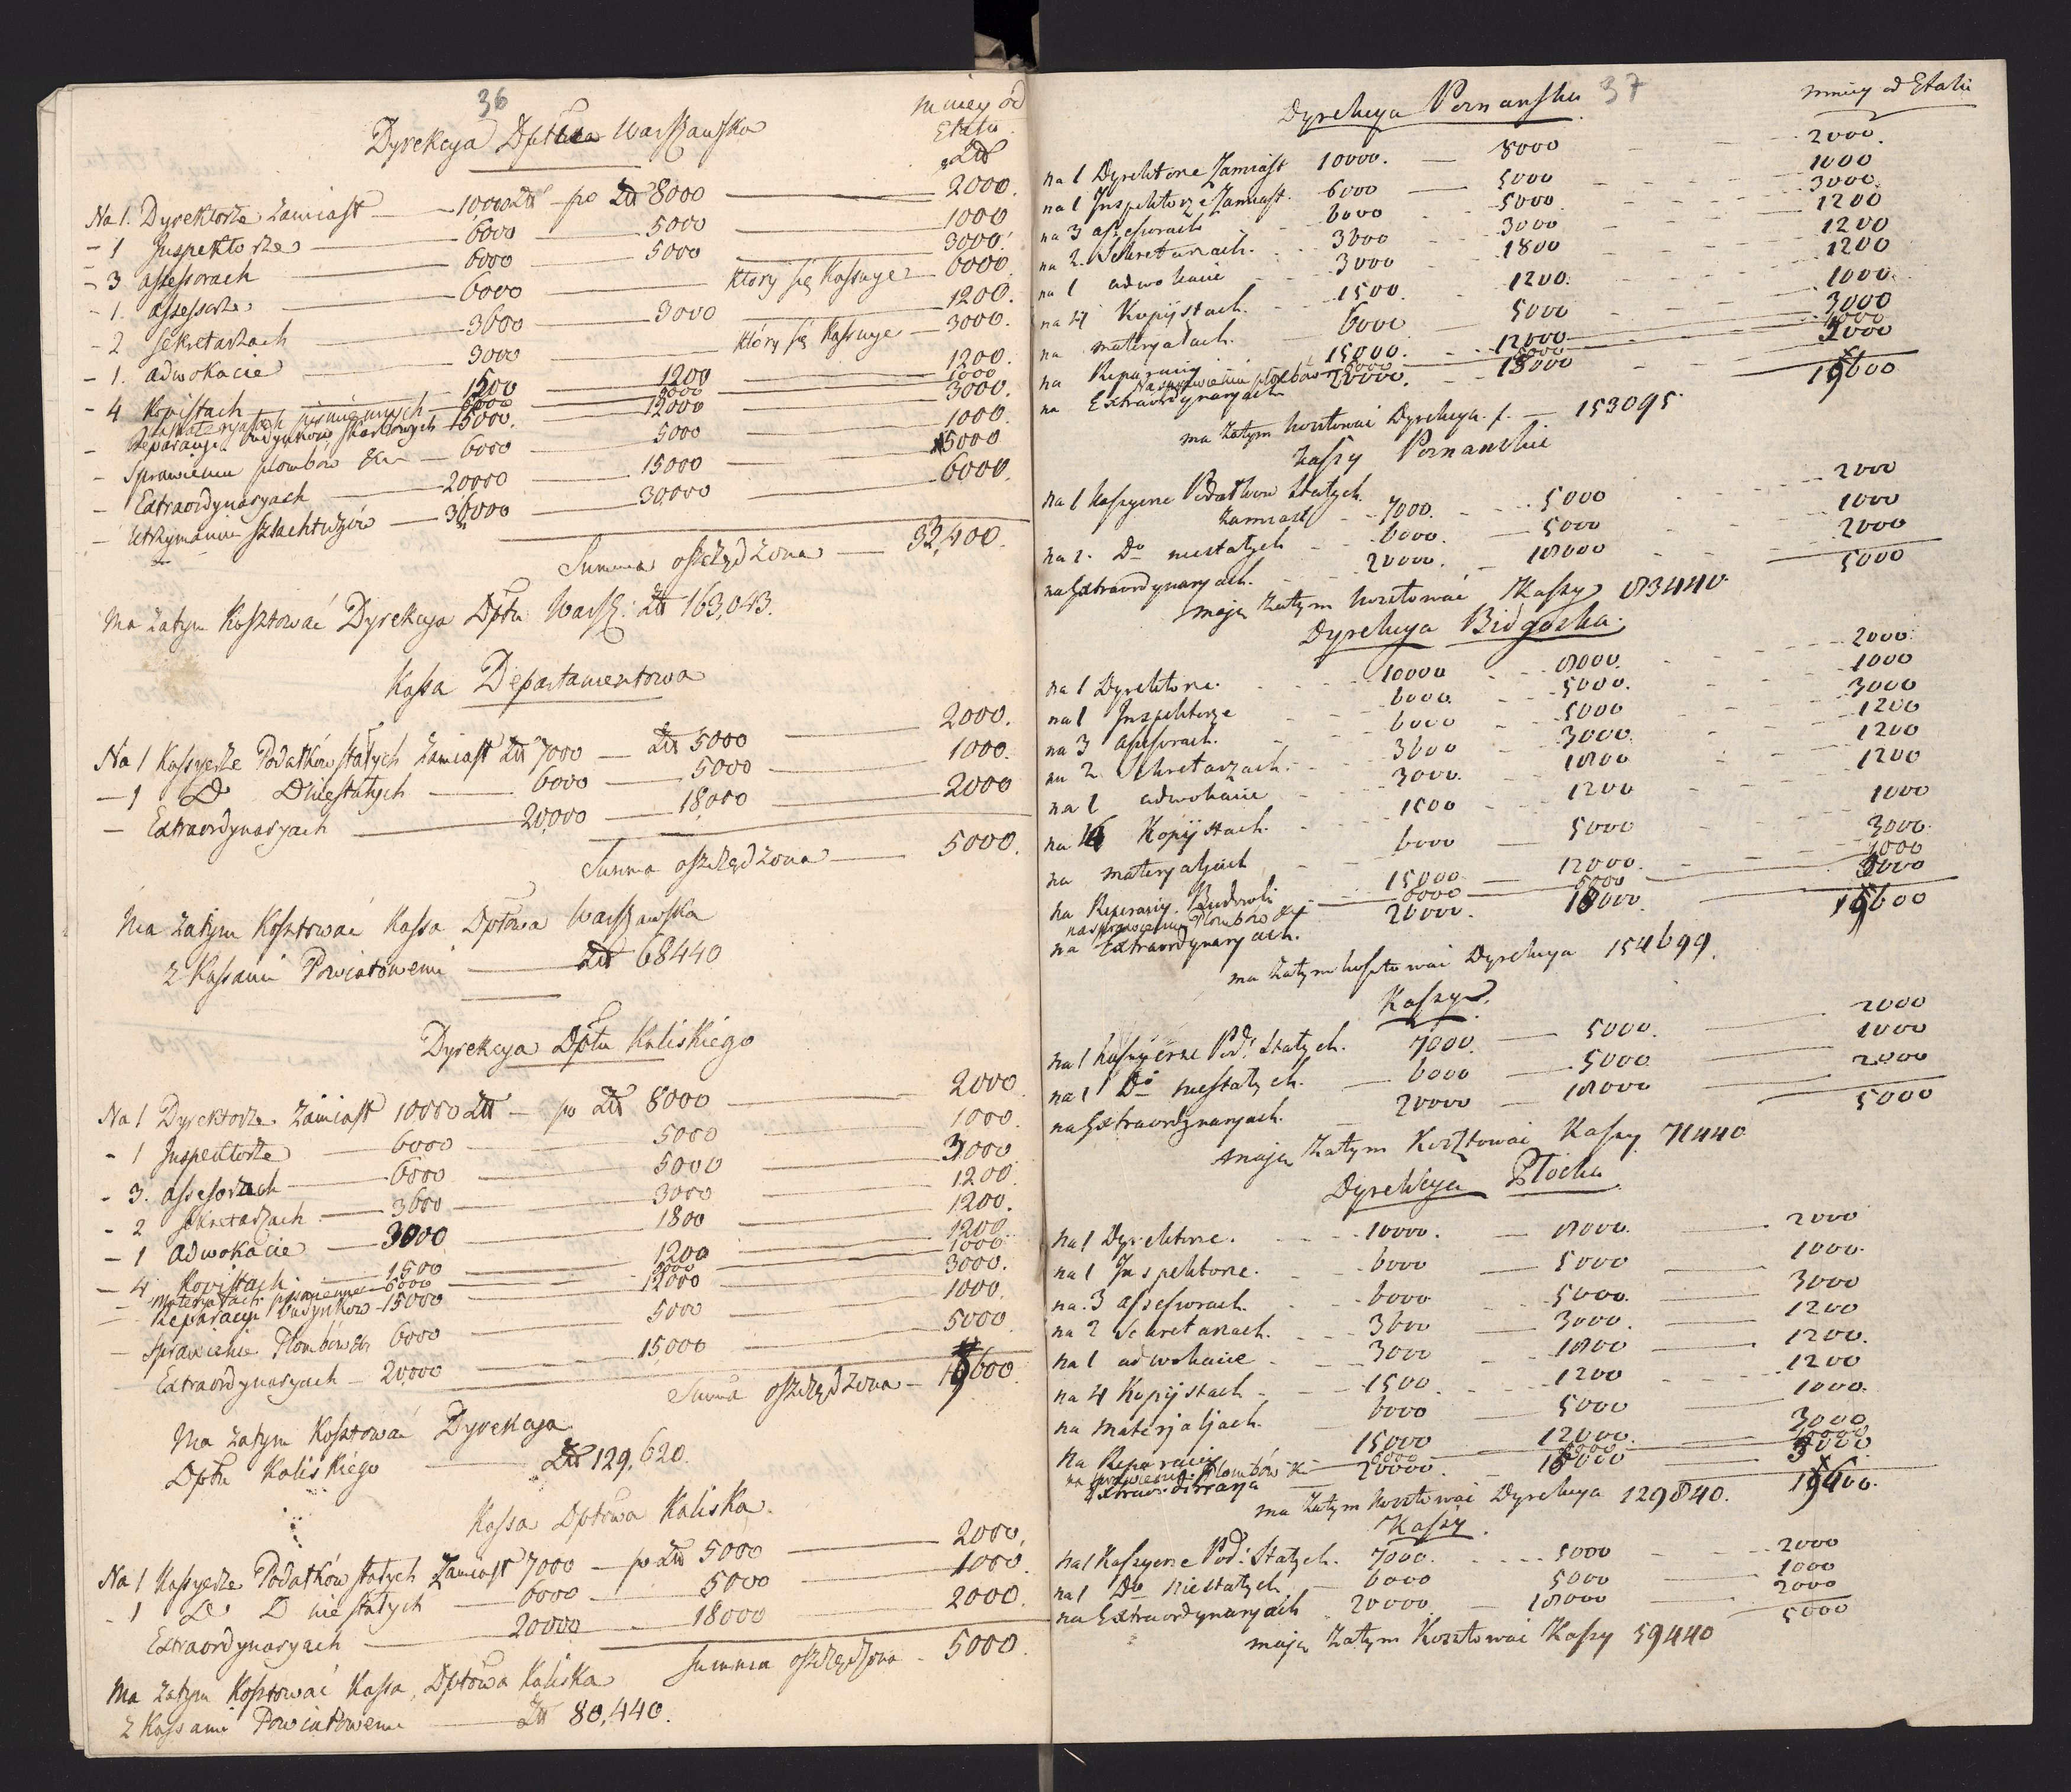 36
Dyrekcya Dpttu Warszawska
mniey od
Etatu
Zł
Na 1. Dyrektorze zamiast — 10000 Zł — po Zł 8000 — 2000.
- 1 Inspektorze — 6000 — 5000 — 1000
- 3 assessorach — 6000 — 5000 — 3000.
- 1. assessorze — 6000 — który się kassuje — 6000
- 2 sekretarzach — 3600 — 3000 — 1200.
- 1. adwokacie — 3000 — który się kassuje — 3000.
- 4 Kopistach — 1500 — 1200 — 1200.
- materyałach piśmiennych — 6000 — 5000 — 1000
- Reparacyi budynków skarbowych — 15000. — 12000 — 3000.
- Sprawieniu plombów &c — 6000 — 5000 — 1000
- Extraordynaryach — 20000 — 15000 — 5000
- Utrzymaniu szlachtuzów — 36000 — 30,000 — 6000.
Summa oszczędzona — 32,400.
Ma zatym kosztować Dyrekcya Dpttu Warsz: Zł 163,043.
Kassa Departamentowa
Na 1 Kassyerze Podatków stałych zamiast Zł 7000 — Zł 5000 — 2000.
- 1 Do D niestałych — 6000 — 5000 — 1000.
- Extraordynaryach — 20,000 — 18,000 — 2000
Summa oszczędzona — 5000.
Ma zatym kosztować Kassa Dptowa Warszawska
z Kassami Powiatowemi — Zł 68440
Dyrekcya Dpttu Kaliskiego
Na 1 Dyrektorze zamiast 10000 Zł — po Zł 8000 — 2000
- 1 Inspektorze — 6000 — 5000 — 1000.
- 3. assessorach — 6000 — 5000 — 3000
- 2 sekretarzach — 3600 — 3000 — 1200
- 1 adwokacie — 3000 — 1800 — 1200.
- 4 Kopistach — 1500 — 1200 — 1200
- Materyałach piśmienne — 6000 — 5000 — 1000
- Reparacyi budynków — 15000 — 12000 — 3000.
- Sprawienie Plombów &c 6000 — 5000 — 1000.
Extraordynaryach — 20,000 — 15,000 — 5000
Summa oszczędzona — 18600.
Ma zatym kosztować Dyrekcya
Dpttu Kaliskiego — Zł 129,620.
Kassa Dptowa Kaliska.
Na 1 Kassyerze Podatków stałych zamiast 7000 — po Zł 5000 — 2000.
- 1 Do D niestałych — 6000 — 5000 — 1000.
Extraordynaryach — 20000 — 18000 — 2000.
Summa oszczędzona — 5000.
Ma zatym kosztować Kassa, Dptowa Kaliska
z Kassami Powiatowemi — Zł 80,440.
37
Dyrekcya Poznańska
mniey od Etatu
na 1 Dyrektorze zamiast 10000. — 8000 — 2000.
na 1 Inspektorze zamiast. 6000 — 5000 — 1000
na 3 assessorach — 6000 — 5000 — 3000.
na 2. Sekretarzach. 3600 — 3000 — 1200
na 1 adwokacie — 3000 — 1800 — 1200
na 4 Kopijstach. — 1500. — 1200. — 1200
na materyałach. — 6000 — 5000 — 1000.
na Reparacij — 15000. — 12000 — 3000
na sprawieniu plombów 6000 — 5000 — 1000
na Extraordynaryach 20000. — 15000 — 5000
18600
ma zatym kosztować Dyrekcya. f. — 153095.
Kassy Poznańskie
na 1 Kassyerze Podatków stałych.
zamiast — 7000. — 5000 — 2000
na 1. Do niestałych — 6000. — 5000 — 1000
na Extraordynaryach. — 20000. — 18000 — 2000
5000
mają zatym kosztować Kassy 83440.
Dyrekcya Bidgoska.
na 1 Dyrektorze. — 10000 — 8000. — 2000.
na 1 Inspektorze — 6000. — 5000. — 1000
na 3 assessorach. — 6000 — 5000 — 3000
na 2. Sekretarzach. — 3600 — 3000. — 1200
na 1 adwokacie — 3000. — 1800 — 1200
na 4 Kopijstach. — 1500 — 1200 — 1200
na materyałach — 6000 — 5000 — 1000
na Reperacij. Budowli — 15000. — 12000. — 3000.
na sprawieniu Plombów &c — 6000 — 5000 — 1000
na Extraordynaryach. — 20000. — 15000. — 5000
18600
ma zatym kosztować Dyrekcya 154699.
Kassy.
na 1 Kassyerze Pod: Stałych. 7000. — 5000. — 2000
na 1 Do niestałych. — 6000 — 5000 — 1000
na Extraordynaryach. — 20000 — 18000 — 2000
5000
mają zatym kosztować Kassy 71440
Dyrekcya Płocka
na 1 Dyrektorze. — 10000. — 8000. — 2000
na 1 Inspektorze. — 6000 — 5000 — 1000.
na. 3 assessorach. — 6000 — 5000. — 3000
na 2 Sekretarzach. — 3600 — 3000. — 1200
na 1 adwokacie — 3000 — 1800 — 1200.
na 4 Kopijstach — 1500 — 1200 — 1200
na materjałjach. — 6000 — 5000 — 1000.
na Reparacij — 15000 — 12000. — 3000.
na sprawieniu Plombów &c — 6000 — 5000 — 1000
Extraordinarya 20000. — 15000 — 5000
18600.
ma zatym kosztować Dyrekcya 129840.
Kassy.
na 1 Kassyerze Pod: Stałych. 7000. — 5000 — 2000
na 1 Do niestałych — 6000 — 5000 — 1000
na Extraordynaryach 20000 — 18000 — 2000
5000
mają zatym kosztować Kassy 59440